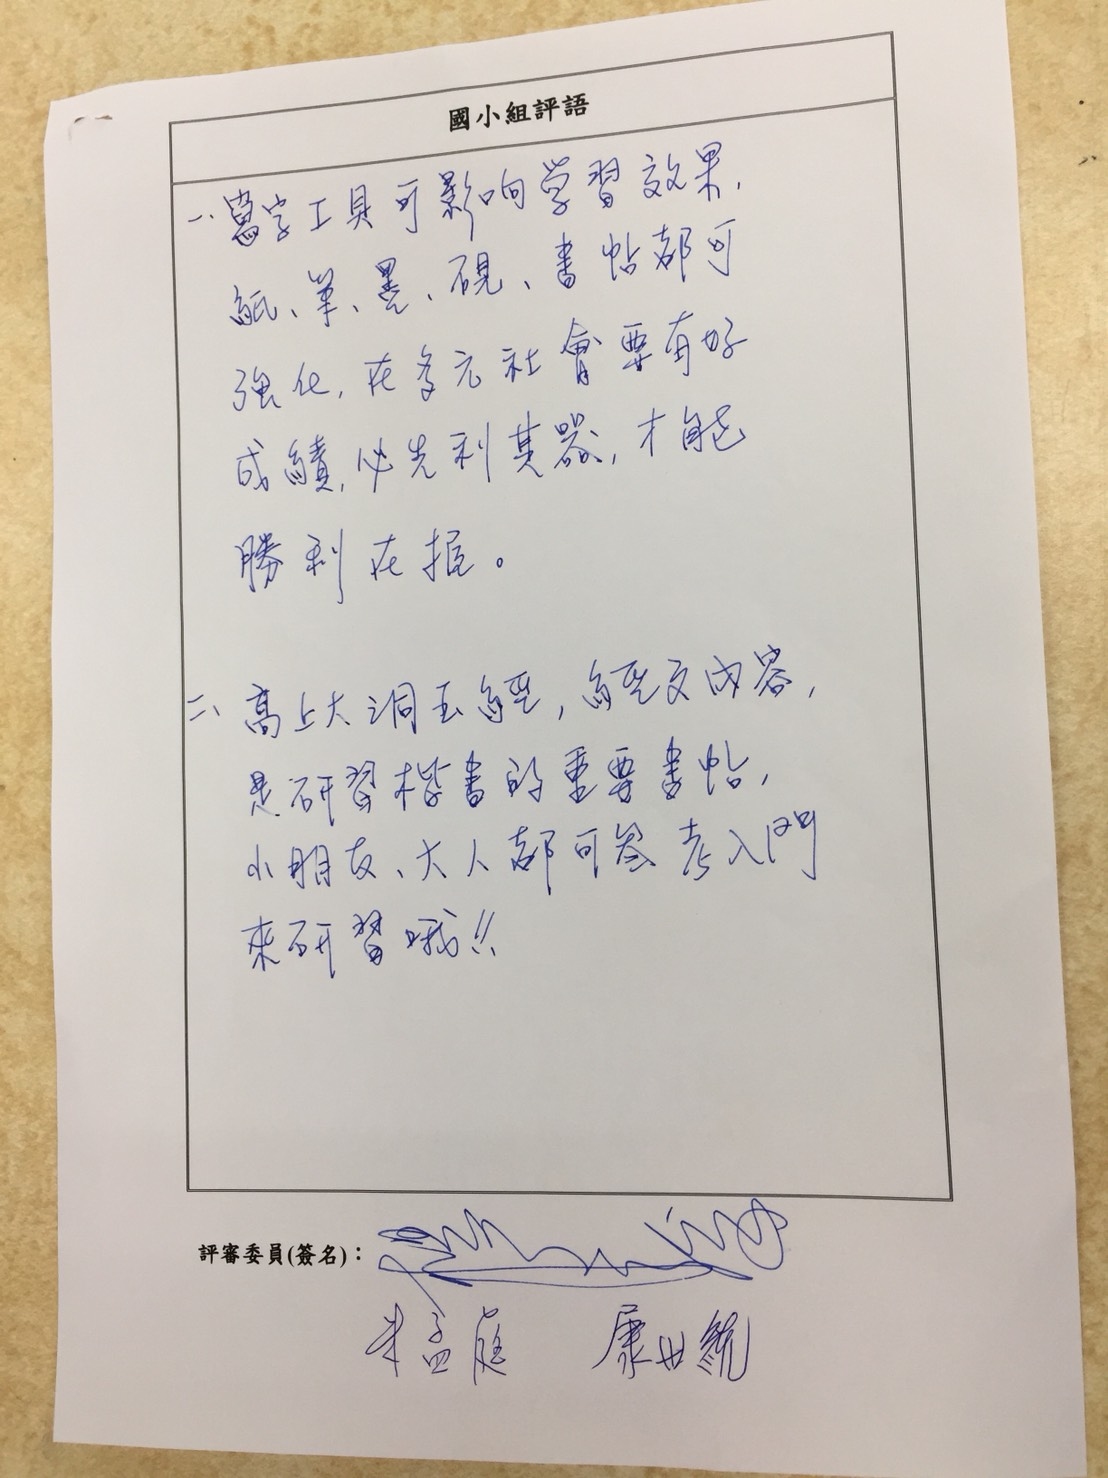 國小組評語
一、寫字工具可影响学習效果,
紙、筆、墨、硯、書帖都可
強化,在多元社會要有好
成績,必先利其器,才能
勝利在握。
二、高上大洞玉經,經文內容,
是研習楷書的重要書帖,
小朋友、大人都可參考入門
來研習哦!!
評審委員(簽名):
孟庭 康世統